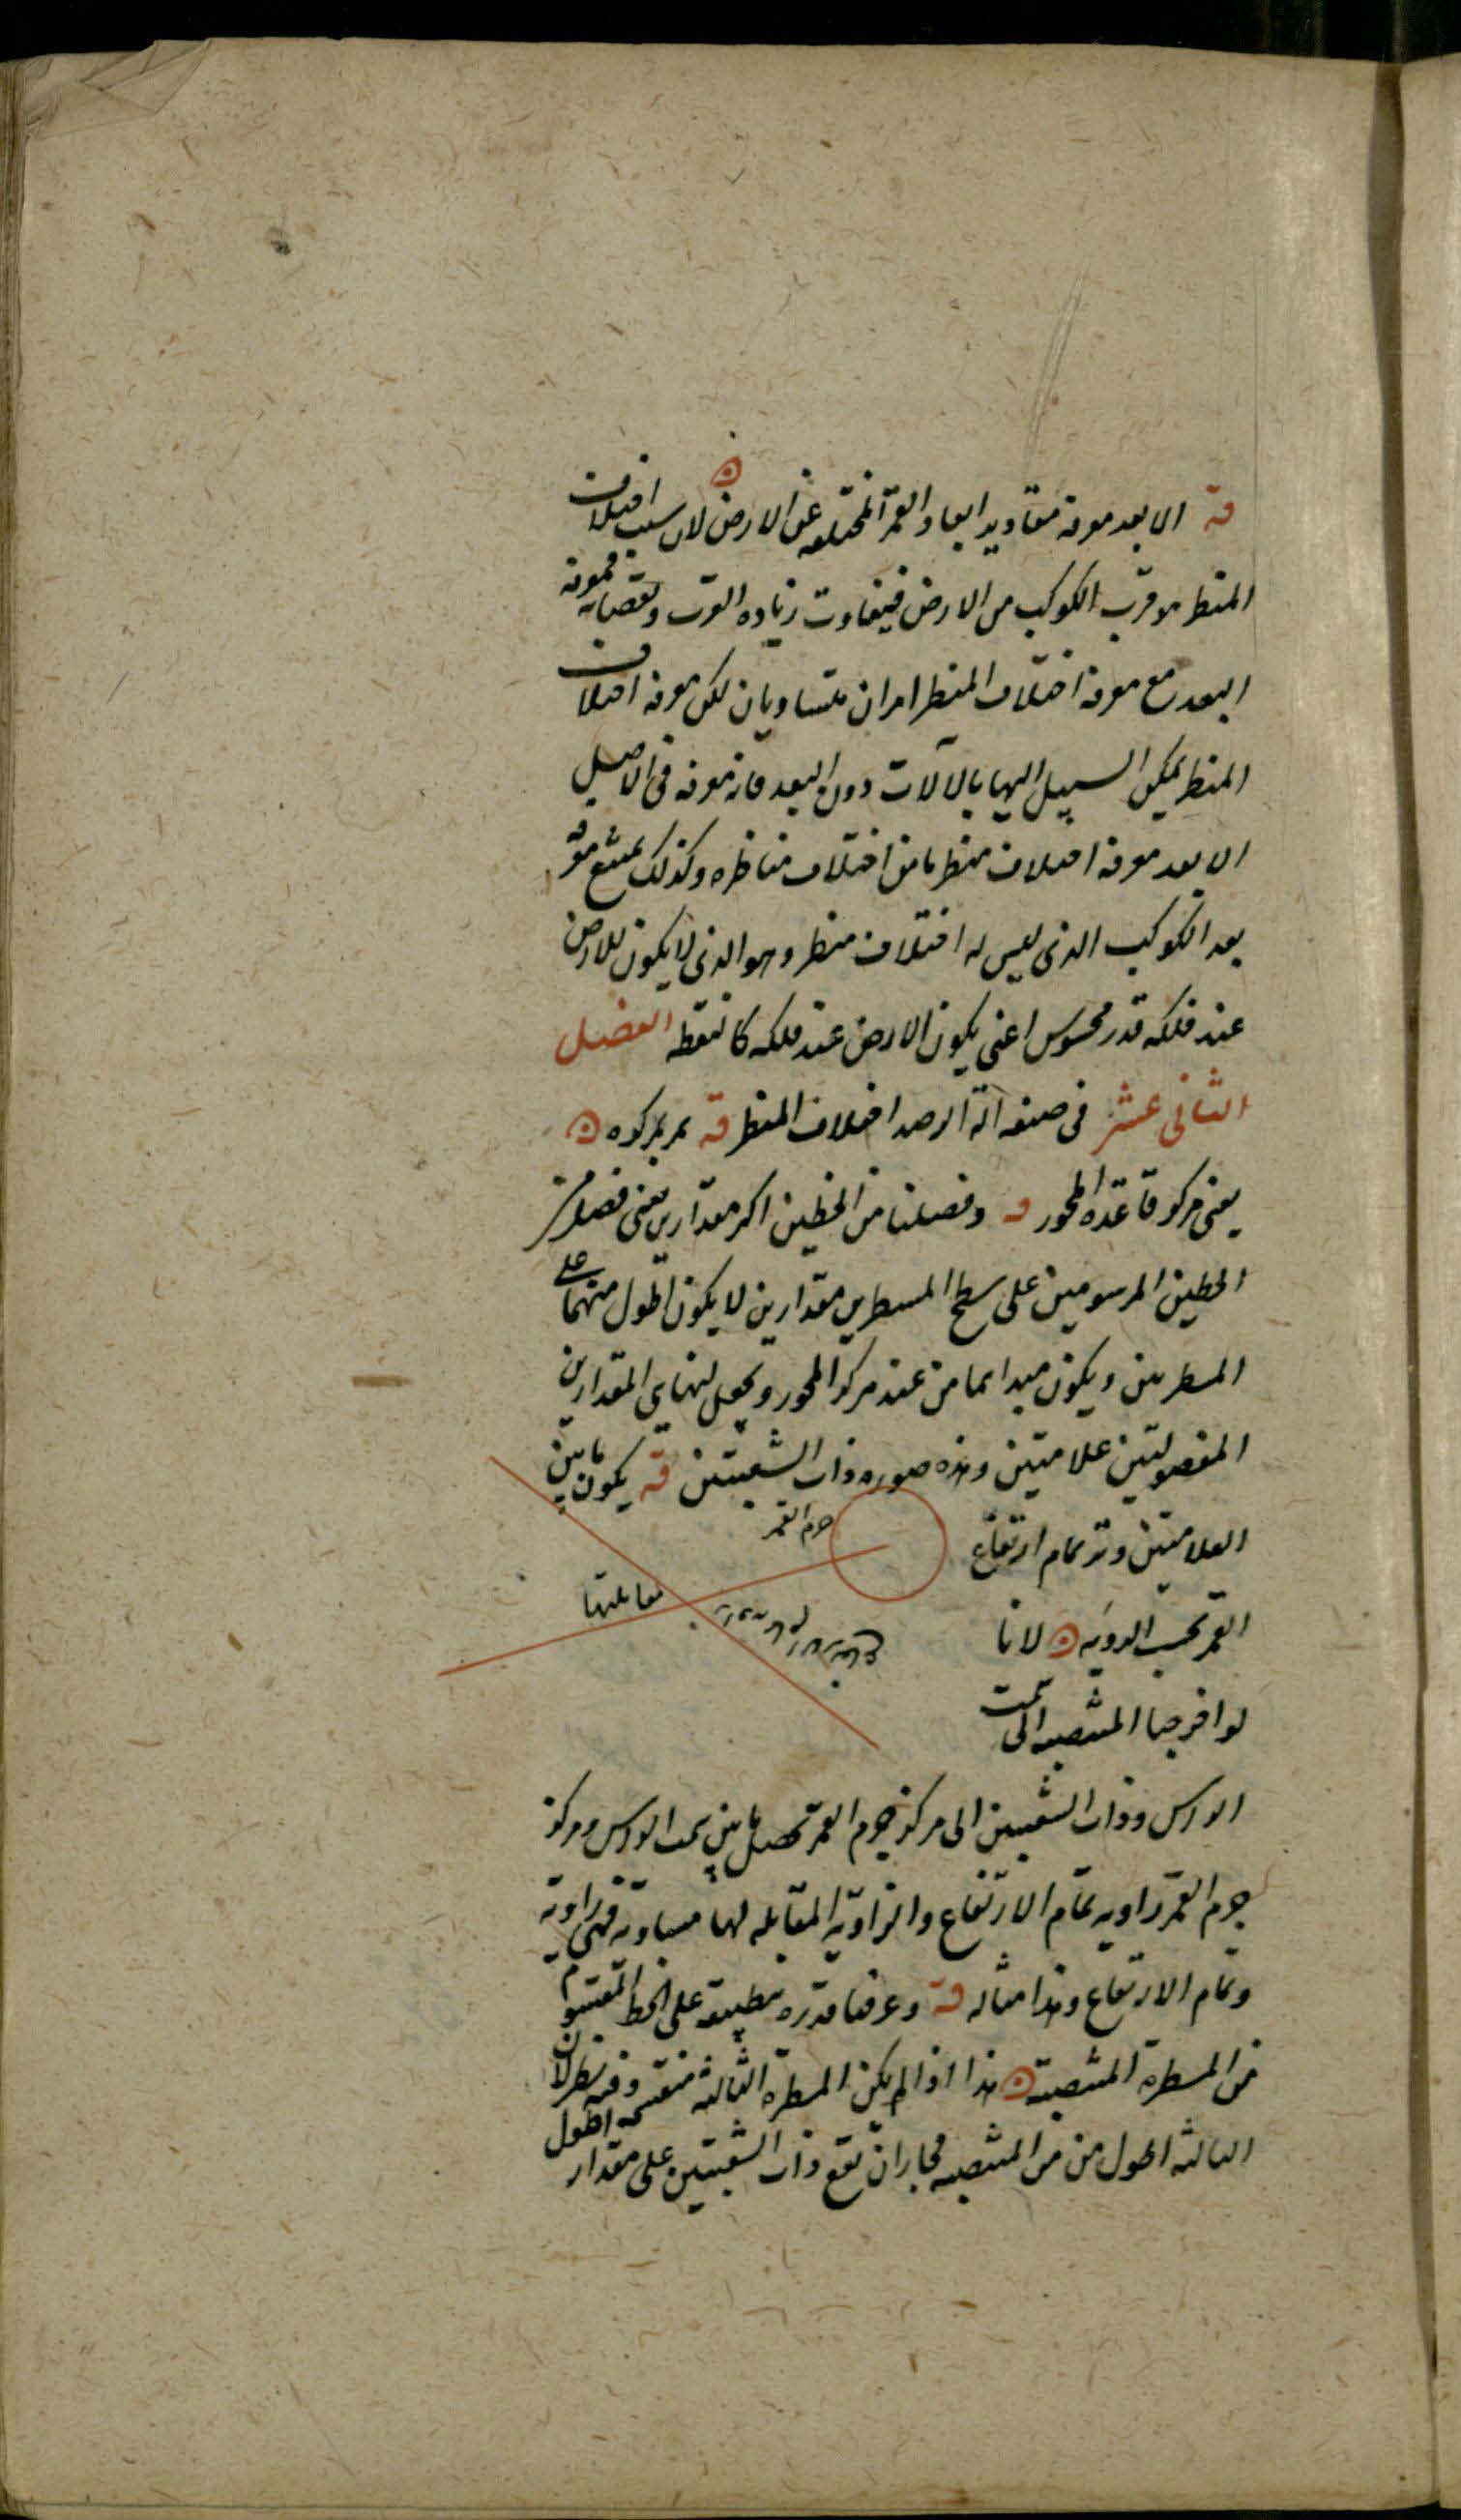 قه الا بعد معرفة مقادير ابعاد القمر المختلفه عن الارض لان سبب اختلاف
المنظر هو قرب الكوكب من الارض فيتفاوت زياده القرب ونقصانه فمعرفة
البعد مع معرفة اختلاف المنظر امران متساويان لكن معرفة اختلاف
المنظر يمكن السبيل اليها بالالات دون البعد فانه معرفة فى الاصل
الا بعد معرفة اختلاف منظر ما من اختلاف مناظره وكذلك يمتنع معرفة
بعد الكوكب الذى ليس له اختلاف منظر وهو الذى لا يكون للارض
عند فلكه قدر محسوس اعنى يكون الارض عند فلكه كالنقطه الفصل
الثانى عشر فى صنعه آلة الرصد اختلاف المنظر قه
يعنى مركز قاعدة المحور قه وفصلنا من الخطين اكبر مقدارين يعنى فصلنا من
الخطين المرسومين على سطح المسطرين مقدارين لا يكون اطول منهما على
المسطرتين ويكون مبداهما من عند مركز المحور ويجعل لنهايى المقدارين
المفصولتين علامتين وهذه صوره ذات الشعبتين قه يكون ما بين
جرم القمر
العلامتين وتر تمام ارتفاع
مقابلتها
القمر بحسب الرويه لانا
لو اخرجنا المنتصبه الى سمت
الراس وذات الشعبتين الى مركز جرم القمر تحصل ما بين سمت الراس ومركز
جرم القمر زاويه تمام الارتفاع والزاوية المقابله لها مساوية فهى زاوية
وتمام الارتفاع وهذا مثاله قه وعرفنا قدره بتطبيقه على الخط المقسوم
من المسطرة المنتصبة هذا اذا لم يكن المسطرة الثالثه منقسمه وفيه نظر لان
الثالثه اطول من من المنتصبه فجاز ان تقع ذات الشعبتين على مقدار اطول